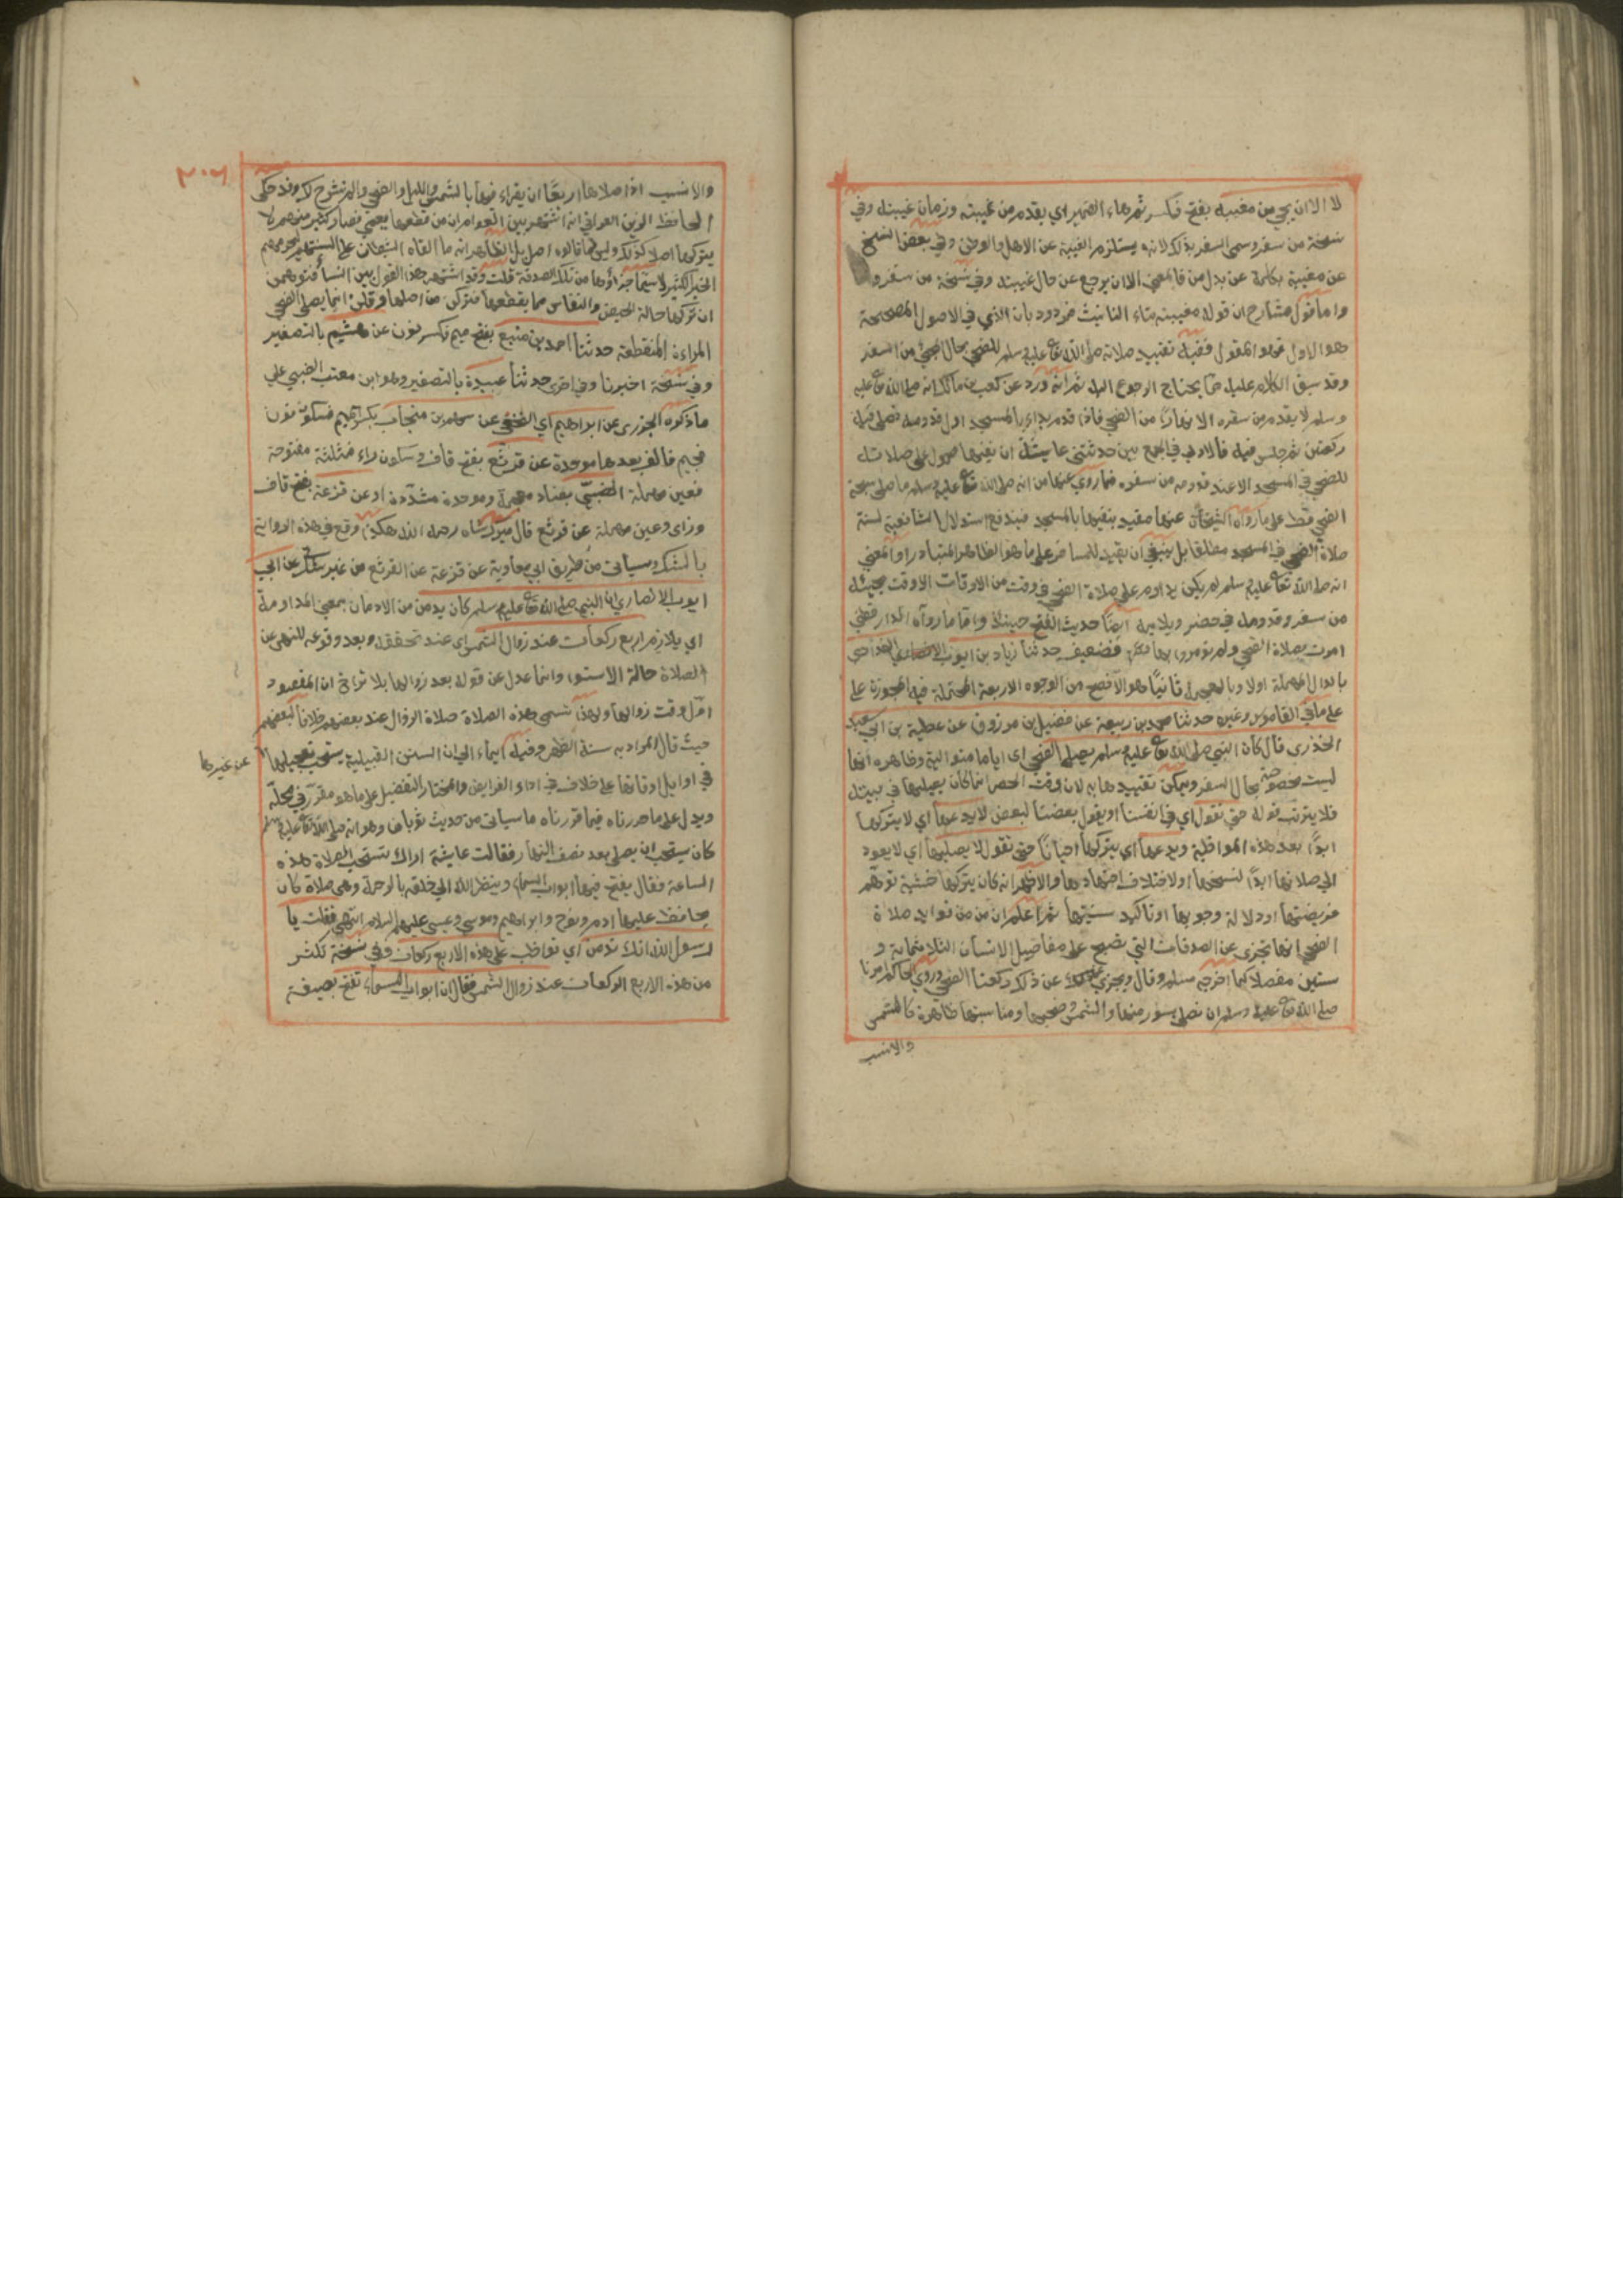 لا الا ان يجي من مغيبه بفتح فكسر ثم هاء الضمير اي يقدم من غيبته وزمان غيبته وفي
نسخة من سفر وسمى السفر بذلك لانه يستلزم الغيبة عن الاهل والوطن وفي بعض النسخ
عن مغيبة بكلمة عن بدل من فالمعنى الا ان يرجع عن حال غيبته وفي نسخة من سفره
واما قول شارح ان قوله مغيبته بتاء التانيث فمردود بان الذي في الاصول المصححة
هو الاول فهو المقول وفيه تقييد صلاته صلى الله تعا عليه وسلم للضحى بحال المجئ من السفر
وقد سبق الكلام عليه بما يحتاج الرجوع اليه ثم انه ورد عن كعب بن مالك انه صلى الله تعا عليه
وسلم لا يقدم من سفره الا نهارا من الضحى فاذا قدم بداء بالمسجد اول قدومه فصلى فيه
ركعتين ثم جلس فيه فالاولى في الجمع بين حديثي عايشة ان نفيها محمول على صلاته
للضحى في المسجد الا عند قدومه من سفره فما روي عنها من انه صلى الله تعا عليه وسلم ما صلى سبحة
الضحى قط على ما رواه الشيخان عنها مقيد بنفيها بالمسجد فيندفع استدلال الشافعية لسنة
صلاة الضحى في المسجد مطلقا بل ينبغي ان يقيد للمسافر على ما هو الظاهر المتبادر او المعنى
انه صلى الله تعا عليه وسلم لم يكن يداوم على صلاة الضحى في وقت من الاوقات الا وقت مجيئه
من سفر وقدومه في حضر ويلايمه ايضا حديث الفتح حينئذ واما ما رواه الدار قطني
امرت بصلاة الضحى ولم تؤمروا بها فضعيف حدثنا زياد بن ايوب البغدادي
بالدال المهملة اولا وبالمعجمة ثانيا هو الافصح من الوجوه الاربعة المحتملة فيه المجوزة على
على ما في القاموس وغيره حدثنا محمد بن ربيعة عن فضيل بن مرزوق عن عطية بن ابي سعيد
الخذري قال كان النبي صلى الله تعا عليه وسلم يصلي الضحى اي اياما متوالية وظاهره انها
ليست مخصوصة بحال السفر ويمكن تقييدها به لان وقت الحضر انما كان يصليها في بيته
فلا يترتب قوله حتى نقول اي في انفسنا او يقول بعضنا لبعض لا يدعها اي لا يتركها
ابدا بعد هذه المواظبة ويدعها اي يتركها احيانا حتى نقول لا يصليها اي لا يعود
الى صلاتها ابدا لنسخها او لاختلاف اجتهاد ها والاظهر انه كان يتركها خشية توهم
فريضتها او دلالة وجوبها او تاكيد سنيتها ثم اعلم ان من من فوايد صلاة
الضحى انها تجزى عن الصدقات التي تصبح على مفاصيل الانسان الثلاثماية و
ستين مفصلا كما اخرجه مسلم وقال ويجزي عن ذلك ركعتا الضحى وروي الحاكم امرنا
صلى الله تعا عليه وسلم ان نصلي بسور منها والشمس وضحيها ومناسبتها ظاهرة كالشمس
والانسب
٣٠٦
والانسب اذا صلاها اربعا ان يقراء فيها بالشمس والليل والضحى والم نشرح لك وقد حكى
الحافظ الزين العراقي انه اشتهر بين العوام ان من قطعها يعمى فصار كثير منهم لا
يتركها اصلا لذلك وليس لما قالوه اصل بل الظاهر انه مما القاه الشيطان على السنتهم ليحرمهم
الخير الكثير لا سيما اجزاؤها من تلك الصدقة قلت وقد اشتهر هذا القول بين النساء فتوهمن
ان تركها حالة الحيض والنفاس مما يقطعها فتركن من اصلها وقلن انما يصلي الضحى
المراءة المنقطعة حدثنا احمد بن منيع بفتح ميم فكسر نون عن هشيم بالتصغير
وفي نسخة اخبرنا وفي اخرى حدثنا عبيدة بالتصغير وهو ابن معتب الضبي على
ما ذكره الجزرى عن ابراهيم اي النخعي عن سهم بن منجاب بكسر ميم فسكون نون
فجيم فالف بعدها موحدة عن قرثع بفتح قاف وسكون راء فمثلثة مفتوحة
فعين مهملة الضبي بضاد معجمة وموحدة مشددة او عن قزعة بفتح قاف
وزاى وعين مهملة عن قرثع قال ميرك شاه رحمه الله هكذا وقع في هذه الرواية
بالشك وسياتي من طريق ابي معاوية عن قزعة عن القرثع من غير شك عن ابي
ايوب الانصاري ان النبي صلى الله تعا عليه وسلم كان يدمن من الادمان بمعنى المداومة
اي يلازم اربع ركعات عند زوال الشمس اى عند تحققه وبعد وقوعه للنهي عن
الصلاة حالة الاستواء وانما عدل عن قوله بعد زوالها بلا تراخ ان المقصود
اول وقت زوالها ولهذا تسمى هذه الصلاة صلاة الزوال عند بعضهم خلافا لبعضهم
حيث قال المراد به سنة الظهر وفيه ايماء الى ان السنن القبيلية يستحب تعجيلها
عن غيرها
في اوايل اوقاتها على خلاف في اداء الفرايض والمختار التفضيل على ما هو مقرر في محله
ويدل على ما حررناه فيما قررناه ما سياتي من حديث ثوبان وهو انه صلى الله تعا عليه وسلم
كان يستحب ان يصلي بعد نصف النهار فقالت عايشة اراك تستحب الصلاة هذه
الساعة فقال يفتح فيها ابواب السماء وينظر الله الى خلقه بالرحمة وهي صلاة كان
يحافظ عليها ادم ونوح وابراهيم وموسى وعيسى عليهم السلام انتهى فقلت يا
رسول الله انك تدمن اي تواظب على هذه الاربع ركعات وفي نسخة تكثر
من هذه الاربع الركعات عند زوال الشمس فقال ان ابواب السماء تفتح بصيغة